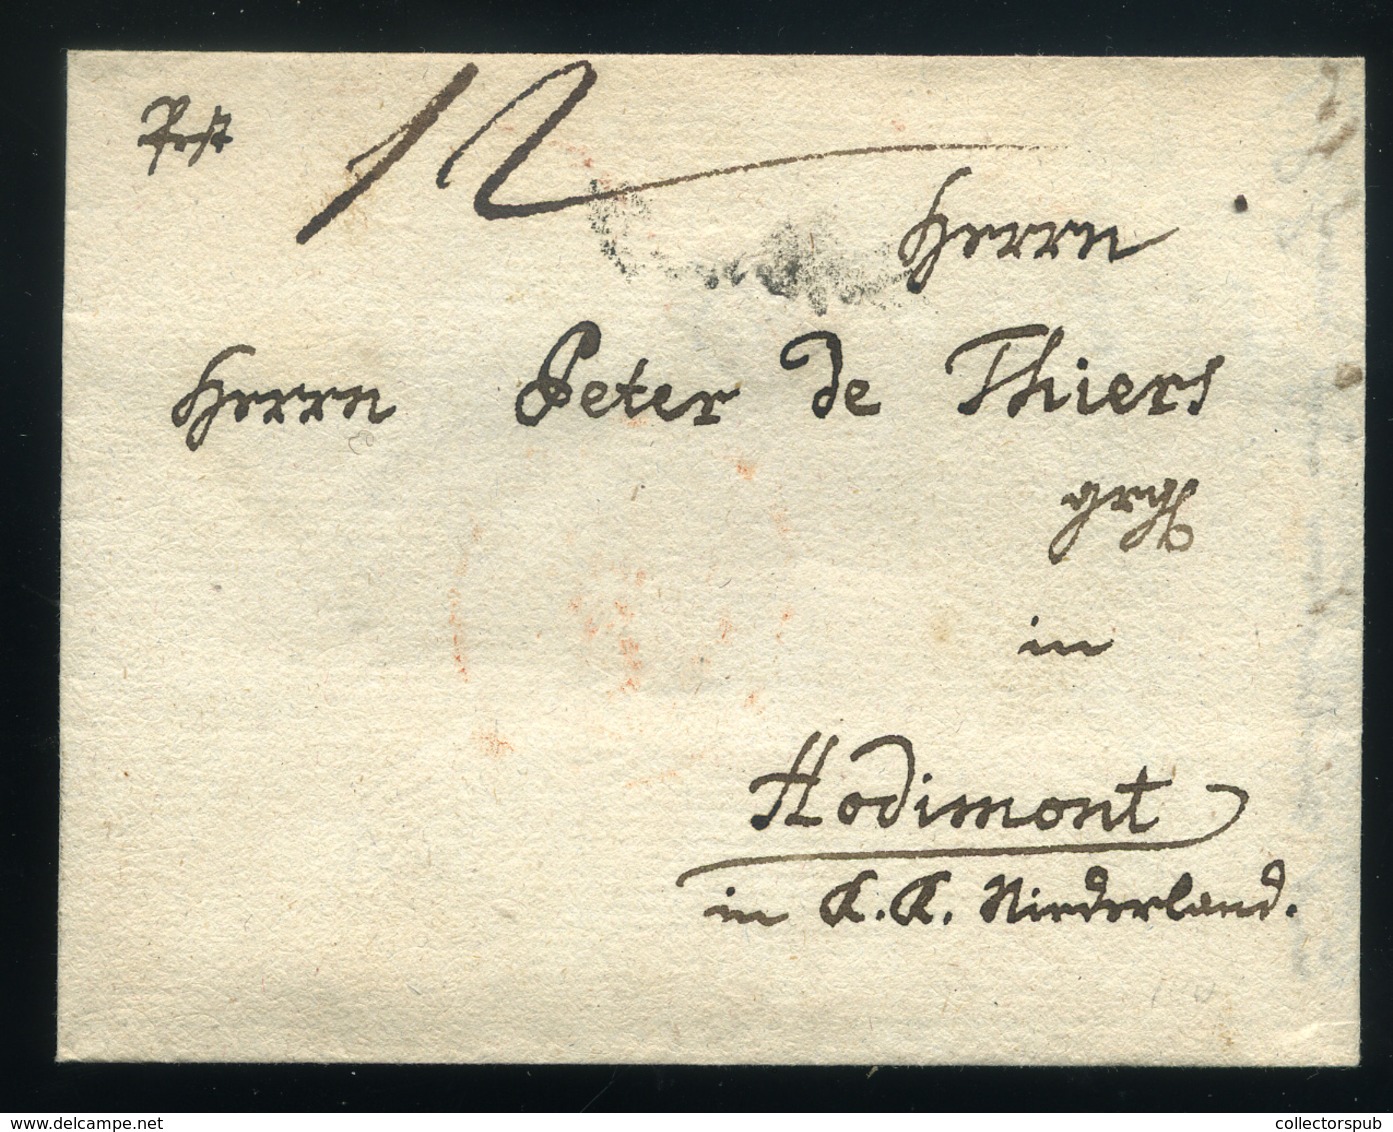 Pest
12
Herrn
Herrn Peter de Thiers
in
Hodimont
in K. K. Niederland.
100
www.delcampe.net
collectorspub